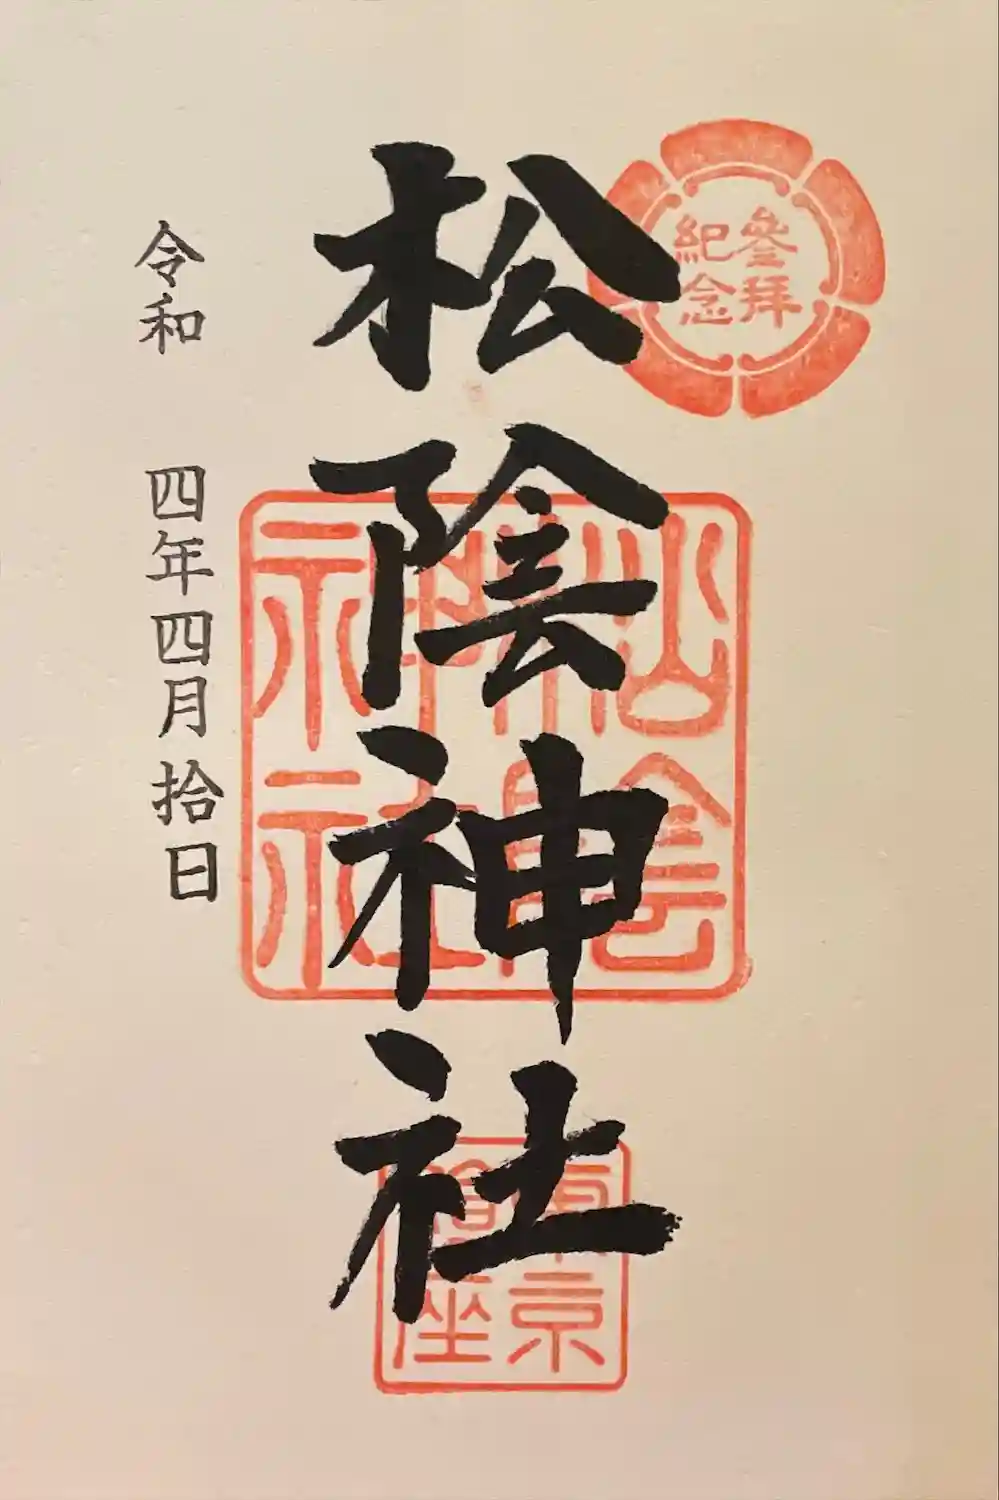 參拜
紀念
松陰神社
松陰
神社
東京
鎮座
令和 四年四月拾日